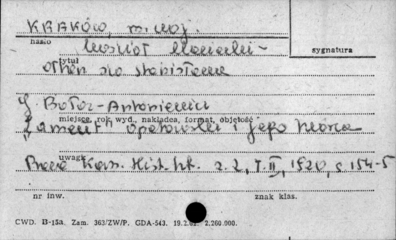 KRAKÓW, m. woj.
hasło
Kościół Mariacki -
sygnatura
tytuł
ołtarz św. Stanisława
J. Bołoz-Antoniewicz
miejsce, rok wyd., nakładca, format, objętość
"Lament" opatowski i jego twórca
uwagi
Prace Kom. Hist. Szt. z. 2, T. II, 1920, s 154-5
nr inw.
znak klas.
CWD. B-15a. Zam. 363/ZW/P. GDA-543. 19.2. 2.260.000.